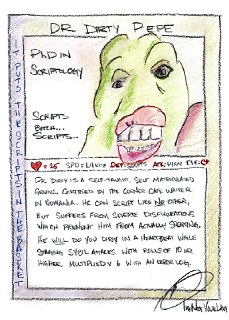 DR DIRTY PEPE
PHD IN
SCRIPTOLOGY
SCRIPTS
BITCH...
SCRIPTS...
IT PUTS THE SCRIPTS IN THE BASKET
DR. DIRTY IS A SELF-TAUGHT, SELF MATRICULATED
GENIUS. CERTIFIED BY THE CORNER CAFE WAITER
IN ROMANIA. HE CAN SCRIPT LIKE NO OTHER,
BUT SUFFERS FROM SEVERE DISFIGURATIONS
WHICH PREVENT HIM FROM ACTUALLY
HE WILL DO YOU DIRTY IN A HEARTBEAT WHILE
ATTACKS WITH ROLLS OF 10 OR
HIGHER. MULTIPLIED X 6 WITH AN